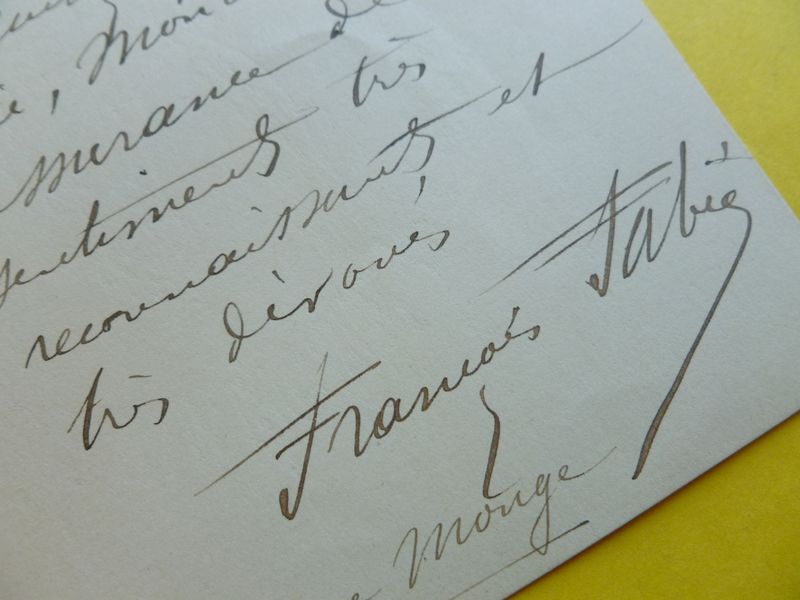 , Mon
ssurance de
sentiments très
reconnaissants et
très dévoués,
François Fabié
Monge